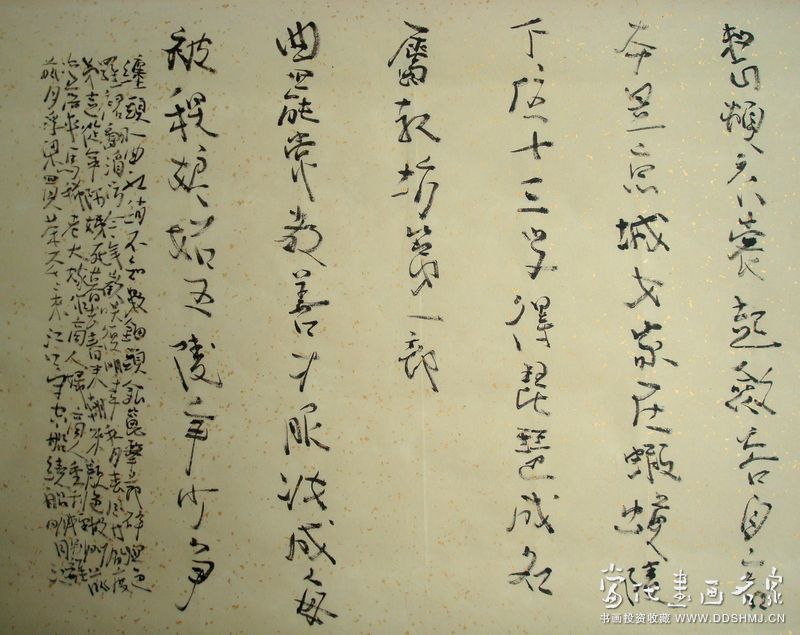 整頓衣裳起斂容自言
本是京城女家在蝦蟆陵
下住十三學得琵琶成名
屬教坊第一部
曲罷常教善才服妝成每
被秋娘妬五陵年少爭
纏頭一曲紅綃不知數鈿頭銀篦擊節碎血色
羅裙翻酒污今年歡笑復明年秋月春風等閑度
弟走從軍阿姨死暮去朝來顏色故門前
冷落車馬稀老大嫁作商人婦商人重利輕別離
前月浮梁買茶去去來江口守空船繞船明月
書画名家
书画投资收藏 WWW.DDSHMJ.CN